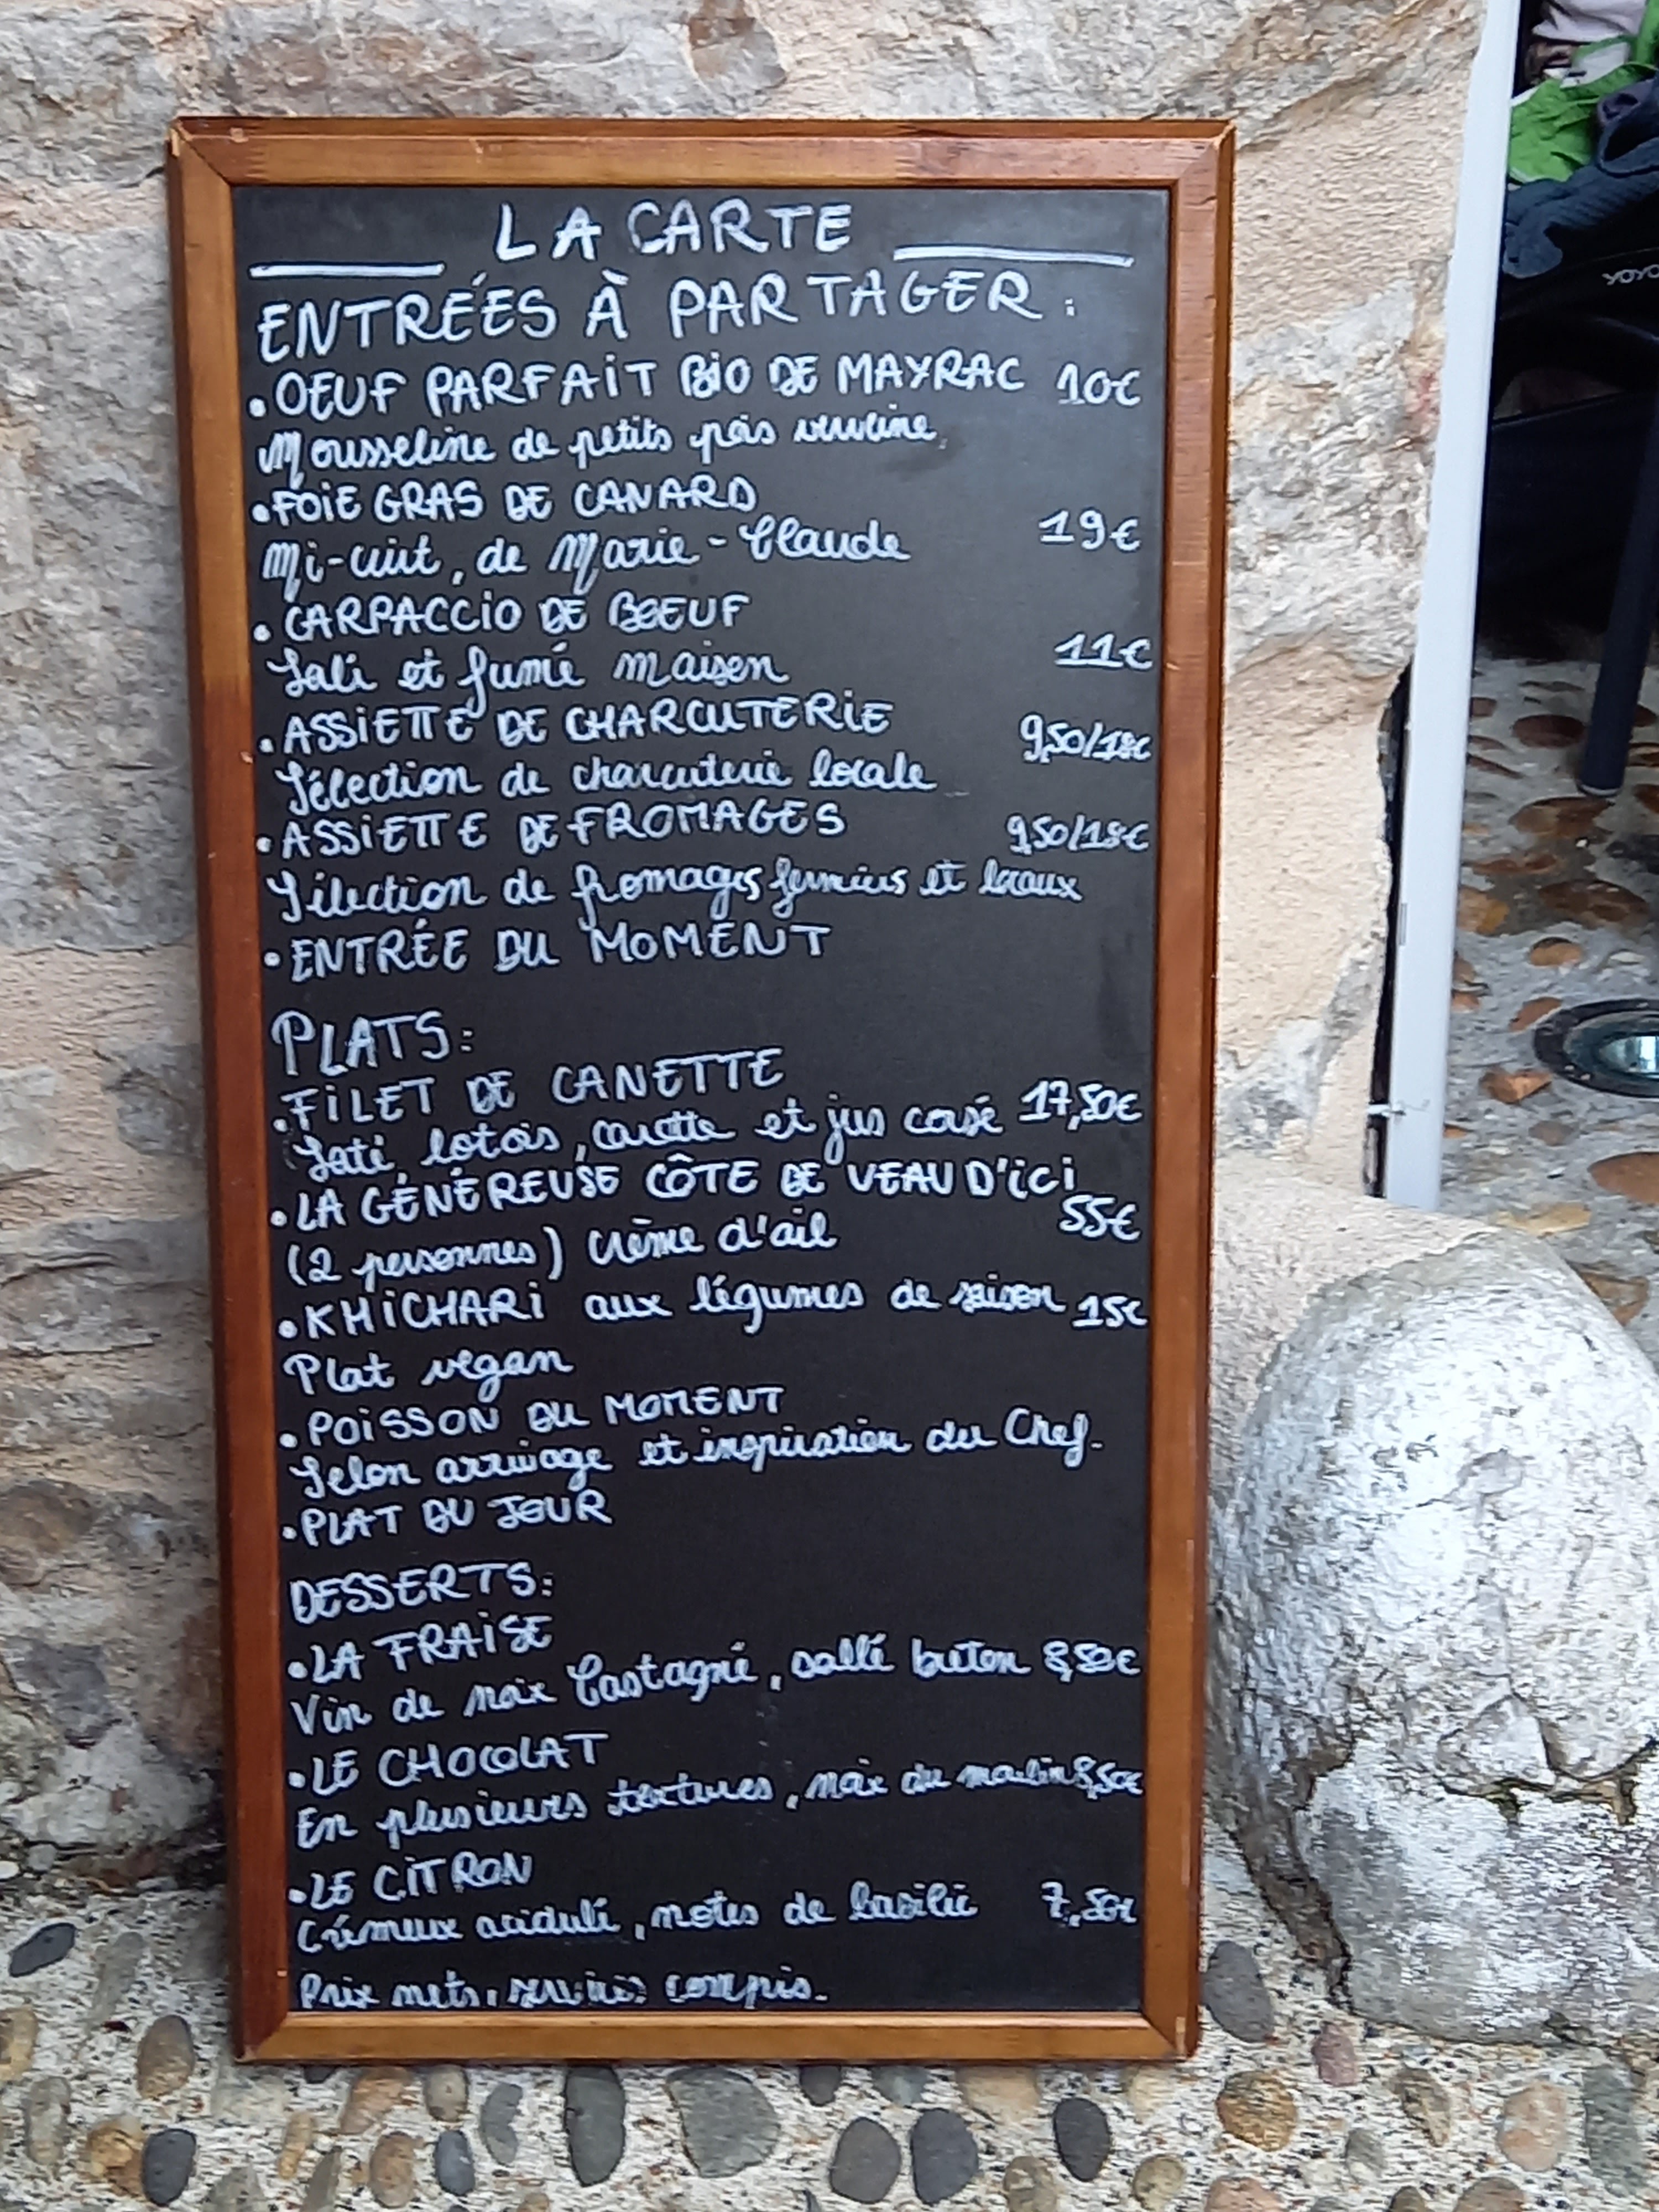 LA CARTE
ENTRÉES À PARTAGER :
• OEUF PARFAIT BIO DE MAYRAC 10€
Mousseline de petits pois verveine
• FOIE GRAS DE CANARD
Mi-cuit, de Marie-Claude 19€
• CARPACCIO DE BOEUF
Salé et fumé maison 11€
• ASSIETTE DE CHARCUTERIE 9,50/18€
Sélection de charcuterie locale
• ASSIETTE DE FROMAGES 9,50/18€
Sélection de fromages fermiers et locaux
• ENTRÉE DU MOMENT
PLATS :
• FILET DE CANETTE
Saté lotois, carotte et jus corsé 17,50€
• LA GÉNÉREUSE CÔTE DE VEAU D'ICI
(2 personnes) Crème d'ail 55€
• KHICHARI aux légumes de saison 15€
Plat végan
• POISSON DU MOMENT
Selon arrivage et inspiration du Chef.
• PLAT DU JOUR
DESSERTS :
• LA FRAISE
Vin de noix Castagné, sablé breton 8,50€
• LE CHOCOLAT
En plusieurs textures, noix du moulin 8,50€
• LE CITRON
Crémeux acidulé, notes de basilic 7,50€
Prix nets, services compris.
YOYO